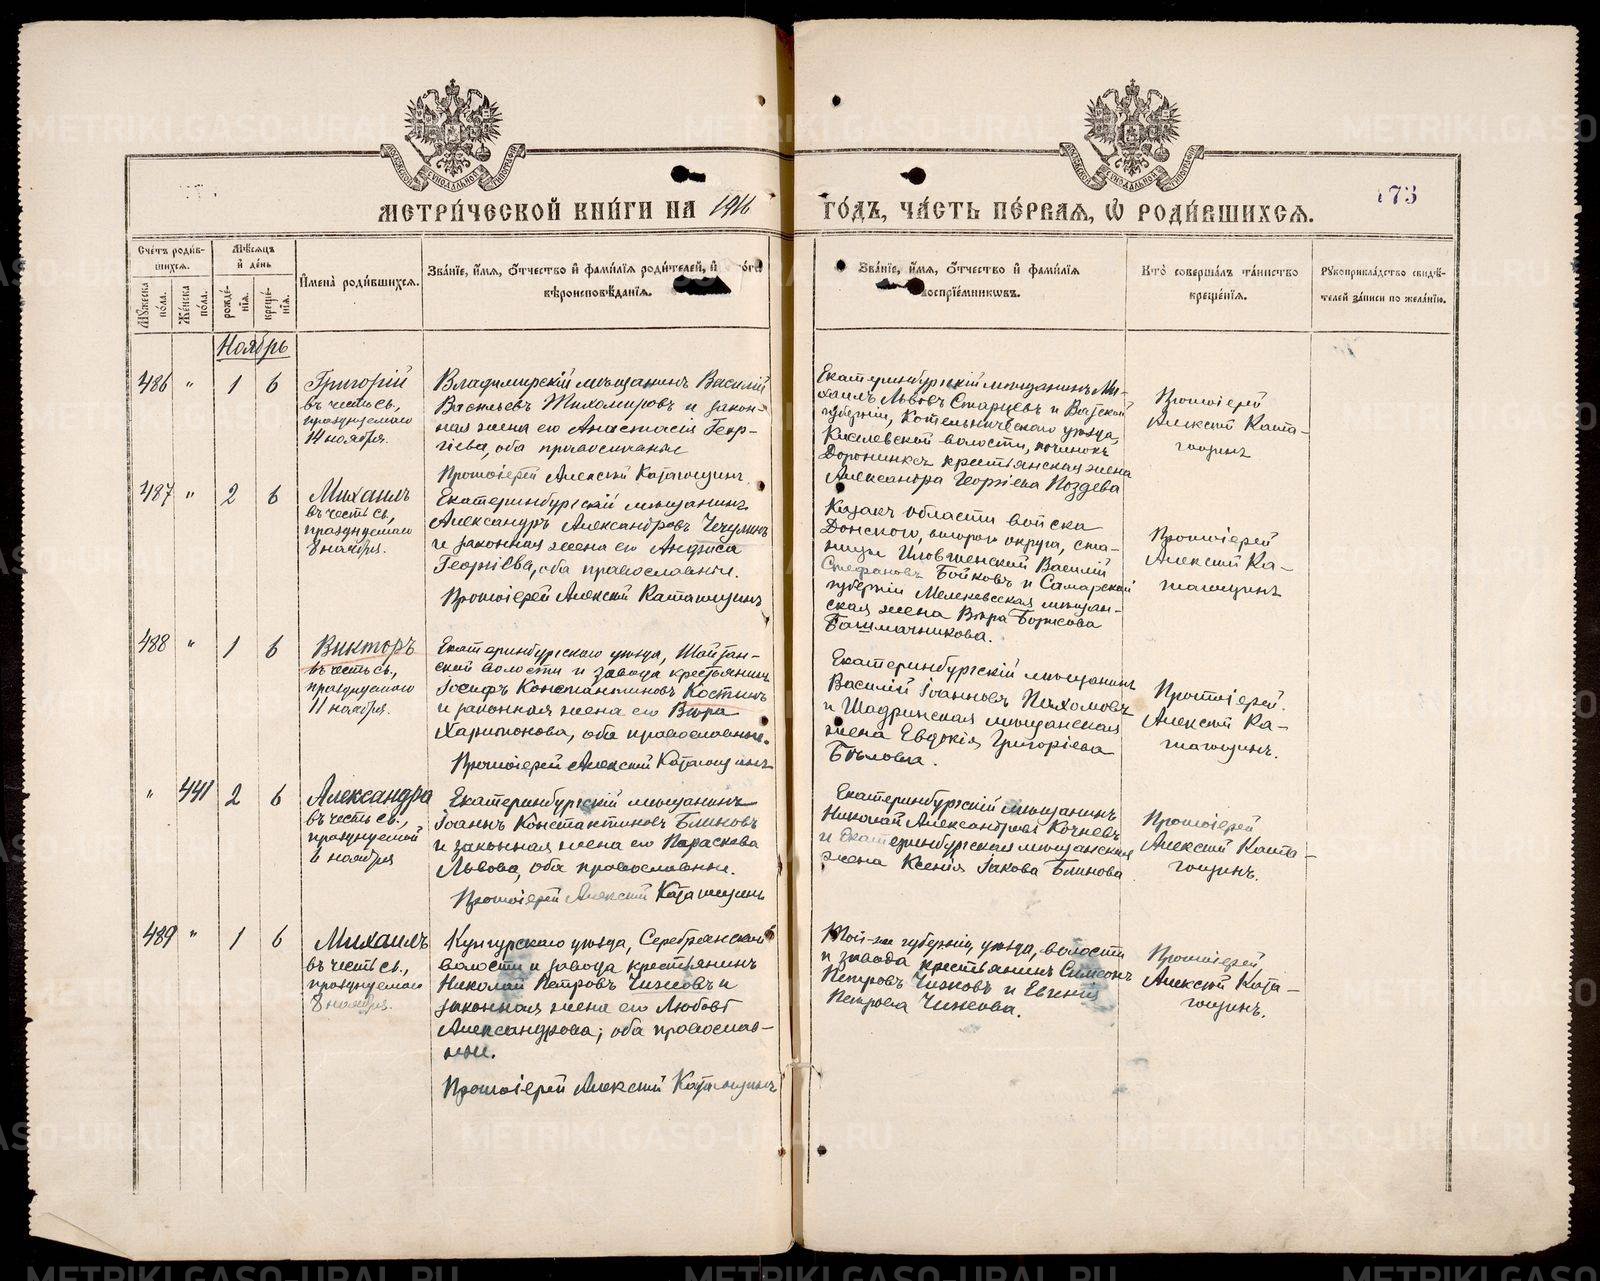 МЕТРИ́ЧЕСКОЙ КНИ́ГИ НА 1916
ГО́ДЪ, ЧА́СТЬ ПЕ́РВАѦ, Ѡ҆ РОДИ́ВШИХСѦ.
173
Сче́тъ роди́вшихсѧ.
Мꙋ́жеска по́ла.
Же́нска по́ла.
Мѣ́сѧцъ и҆ де́нь
рожде́нїѧ.
креще́нїѧ.
И҆мена̀ роди́вшихсѧ.
Зва́нїе, и҆́мѧ, ѻ҆́тчество и҆ фами́лїѧ роди́телей, и҆
вѣроисповѣ́данїѧ.
Зва́нїе, и҆́мѧ, ѻ҆́тчество и҆ фами́лїѧ
воспрїе́мникѡвъ.
Кто̀ соверша́лъ та́инство
креще́нїѧ.
Рꙋкоприкла́дство свидѣ́-
телей за́писи по жела́нїю.
Ноябрь
486 " 1 6
Григорій
въ честь св.,
празднуемаго
14 ноября.
Владимирскій мѣщанинъ Василій
Васильевъ Тихомировъ и закон-
ная жена его Анастасія Геор-
гіева, оба православные
Протоіерей Алексій Каташцинъ
Екатеринбургскій мѣщанинъ Ми-
хаилъ Львовъ Старцевъ и Вятской
губерніи, Котельническаго уѣзда,
Киселевской волости, починокъ
крестьянская жена
Александра Георгіева Поздева
Протоіерей
Алексій
487 " 2 6
Михаилъ
въ честь св.,
празднуемаго
8 ноября.
Екатеринбургскій мѣщанинъ
Александръ Александровъ Чечулинъ
и законная жена его
Георгіева, оба православные.
Протоіерей Алексій
Казакъ области войска
Донского, второго округа, ста-
ницы Василій
Стефановъ Бойковъ и Самарской
губерніи мѣщан-
ская жена Вѣра Борисова
Башмачникова.
Протоіерей
Алексій
488 " 1 6
Викторъ
въ честь св.,
празднуемаго
11 ноября.
Екатеринбургскаго уѣзда, Шайтан-
ской волости и завода крестьянинъ
Іосифъ Константиновъ Костинъ
и законная жена его Вѣра
Харитонова, оба православные.
Протоіерей Алексій
Екатеринбургскій мѣщанинъ
Василій Іоанновъ Пахомовъ
и Шадринская мѣщанская
жена Евдокія Григоріева
Бѣлова.
Протоіерей
Алексій
" 441 2 6
Александра
въ честь св.,
празднуемой
6 ноября
Екатеринбургскій мѣщанинъ
Іоаннъ Константиновъ Блиновъ
и законная жена его Параскева
Львова, оба православные.
Протоіерей Алексій
Екатеринбургскій мѣщанинъ
Николай Александровъ Кочневъ
и Екатеринбургская мѣщанская
жена Ксенія Іакова Блинова
Протоіерей
Алексій
489 " 1 6
Михаилъ
въ честь св.,
празднуемаго
8 ноября.
Кунгурскаго уѣзда, Серебрянской
волости и завода крестьянинъ
Николай Петровъ Чижовъ и
законная жена его Любовь
Александрова, оба православ-
ные.
Протоіерей Алексій
Той-же губерніи, уѣзда, волости
и завода крестьянинъ Симеонъ
Петровъ Чижовъ и Евгенія
Петрова Чижова.
Протоіерей
Алексій
METRIKI.GASO-URAL.RU